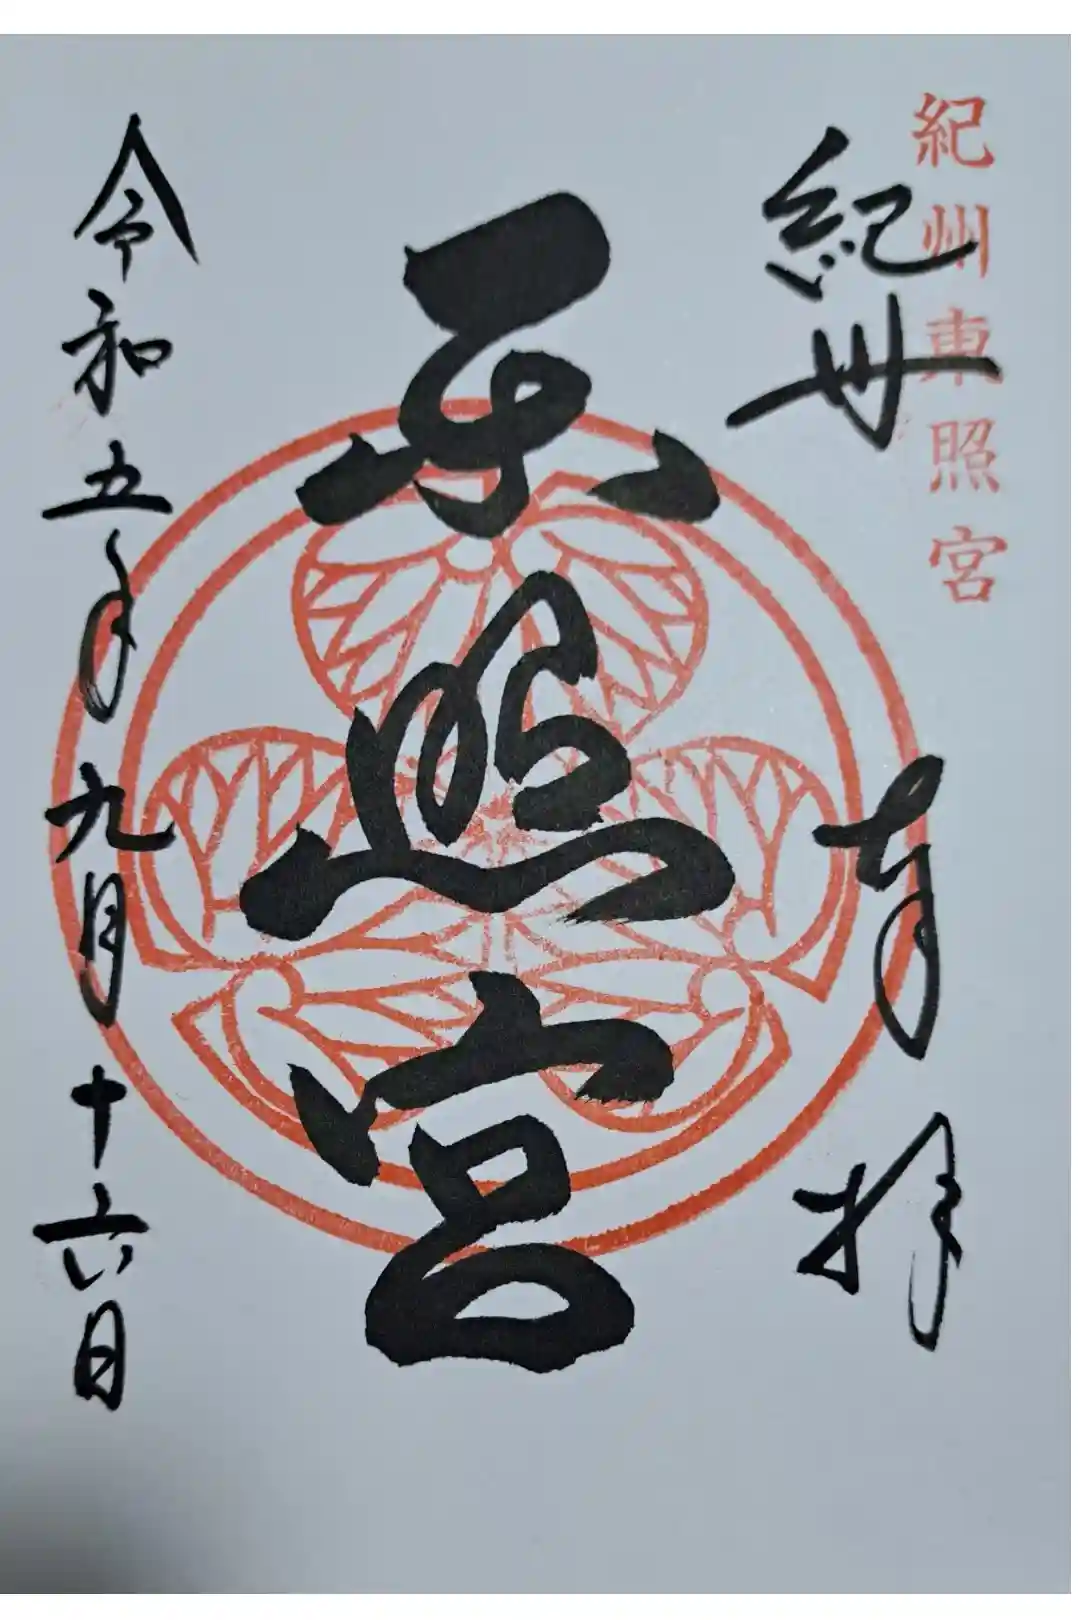 紀州東照宮
紀州
奉拝
東照宮
令和五年九月十六日